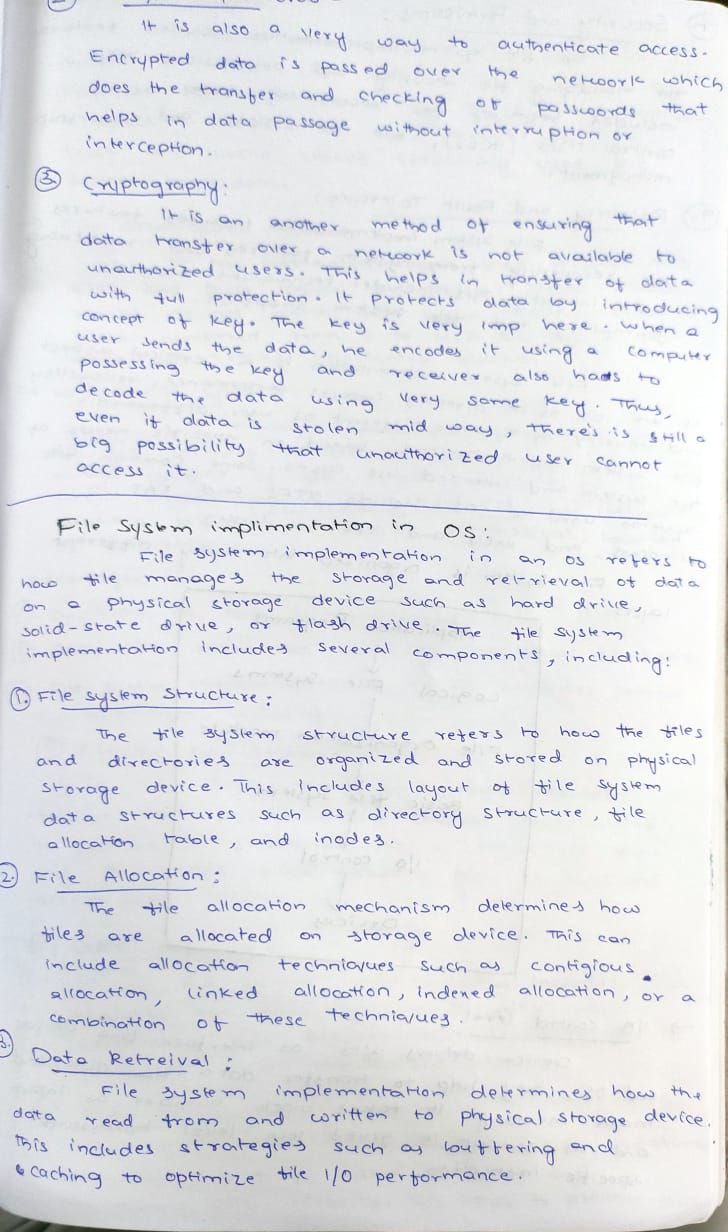 It is also a very way to authenticate access.
Encrypted data is passed over the network which
does the transfer and checking of passwords that
helps in data passage without interruption or
interception.
③ Cryptography:
It is an another method of ensuring that
data transfer over a network is not available to
unauthorized users. This helps in transfer of data
with full protection. It protects data by introducing
concept of key. The key is very imp here. When a
user sends the data, he encodes it using a computer
possessing the key and receiver also hads to
decode the data using very same key. Thus,
even if data is stolen mid way, there's is still a
big possibility that unauthorized user cannot
access it.
File System implimentation in OS:
File system implementation in an OS refers to
how file manages the storage and retrieval of data
on a physical storage device such as hard drive,
solid-state drive, or flash drive. The file system
implementation includes several components, including:
①. File system Structure:
The file system structure refers to how the files
and directories are organized and stored on physical
storage device. This includes layout of file system
data structures such as directory structure, file
allocation table, and inodes.
2. File Allocation:
The file allocation mechanism determines how
files are allocated on storage device. This can
include allocation techniques such as contigious
allocation, linked allocation, indexed allocation, or a
combination of these techniques.
3. Data Retreival:
File system implementation determines how the
data read from and written to physical storage device.
This includes strategies such as buffering and
caching to optimize file I/O performance.